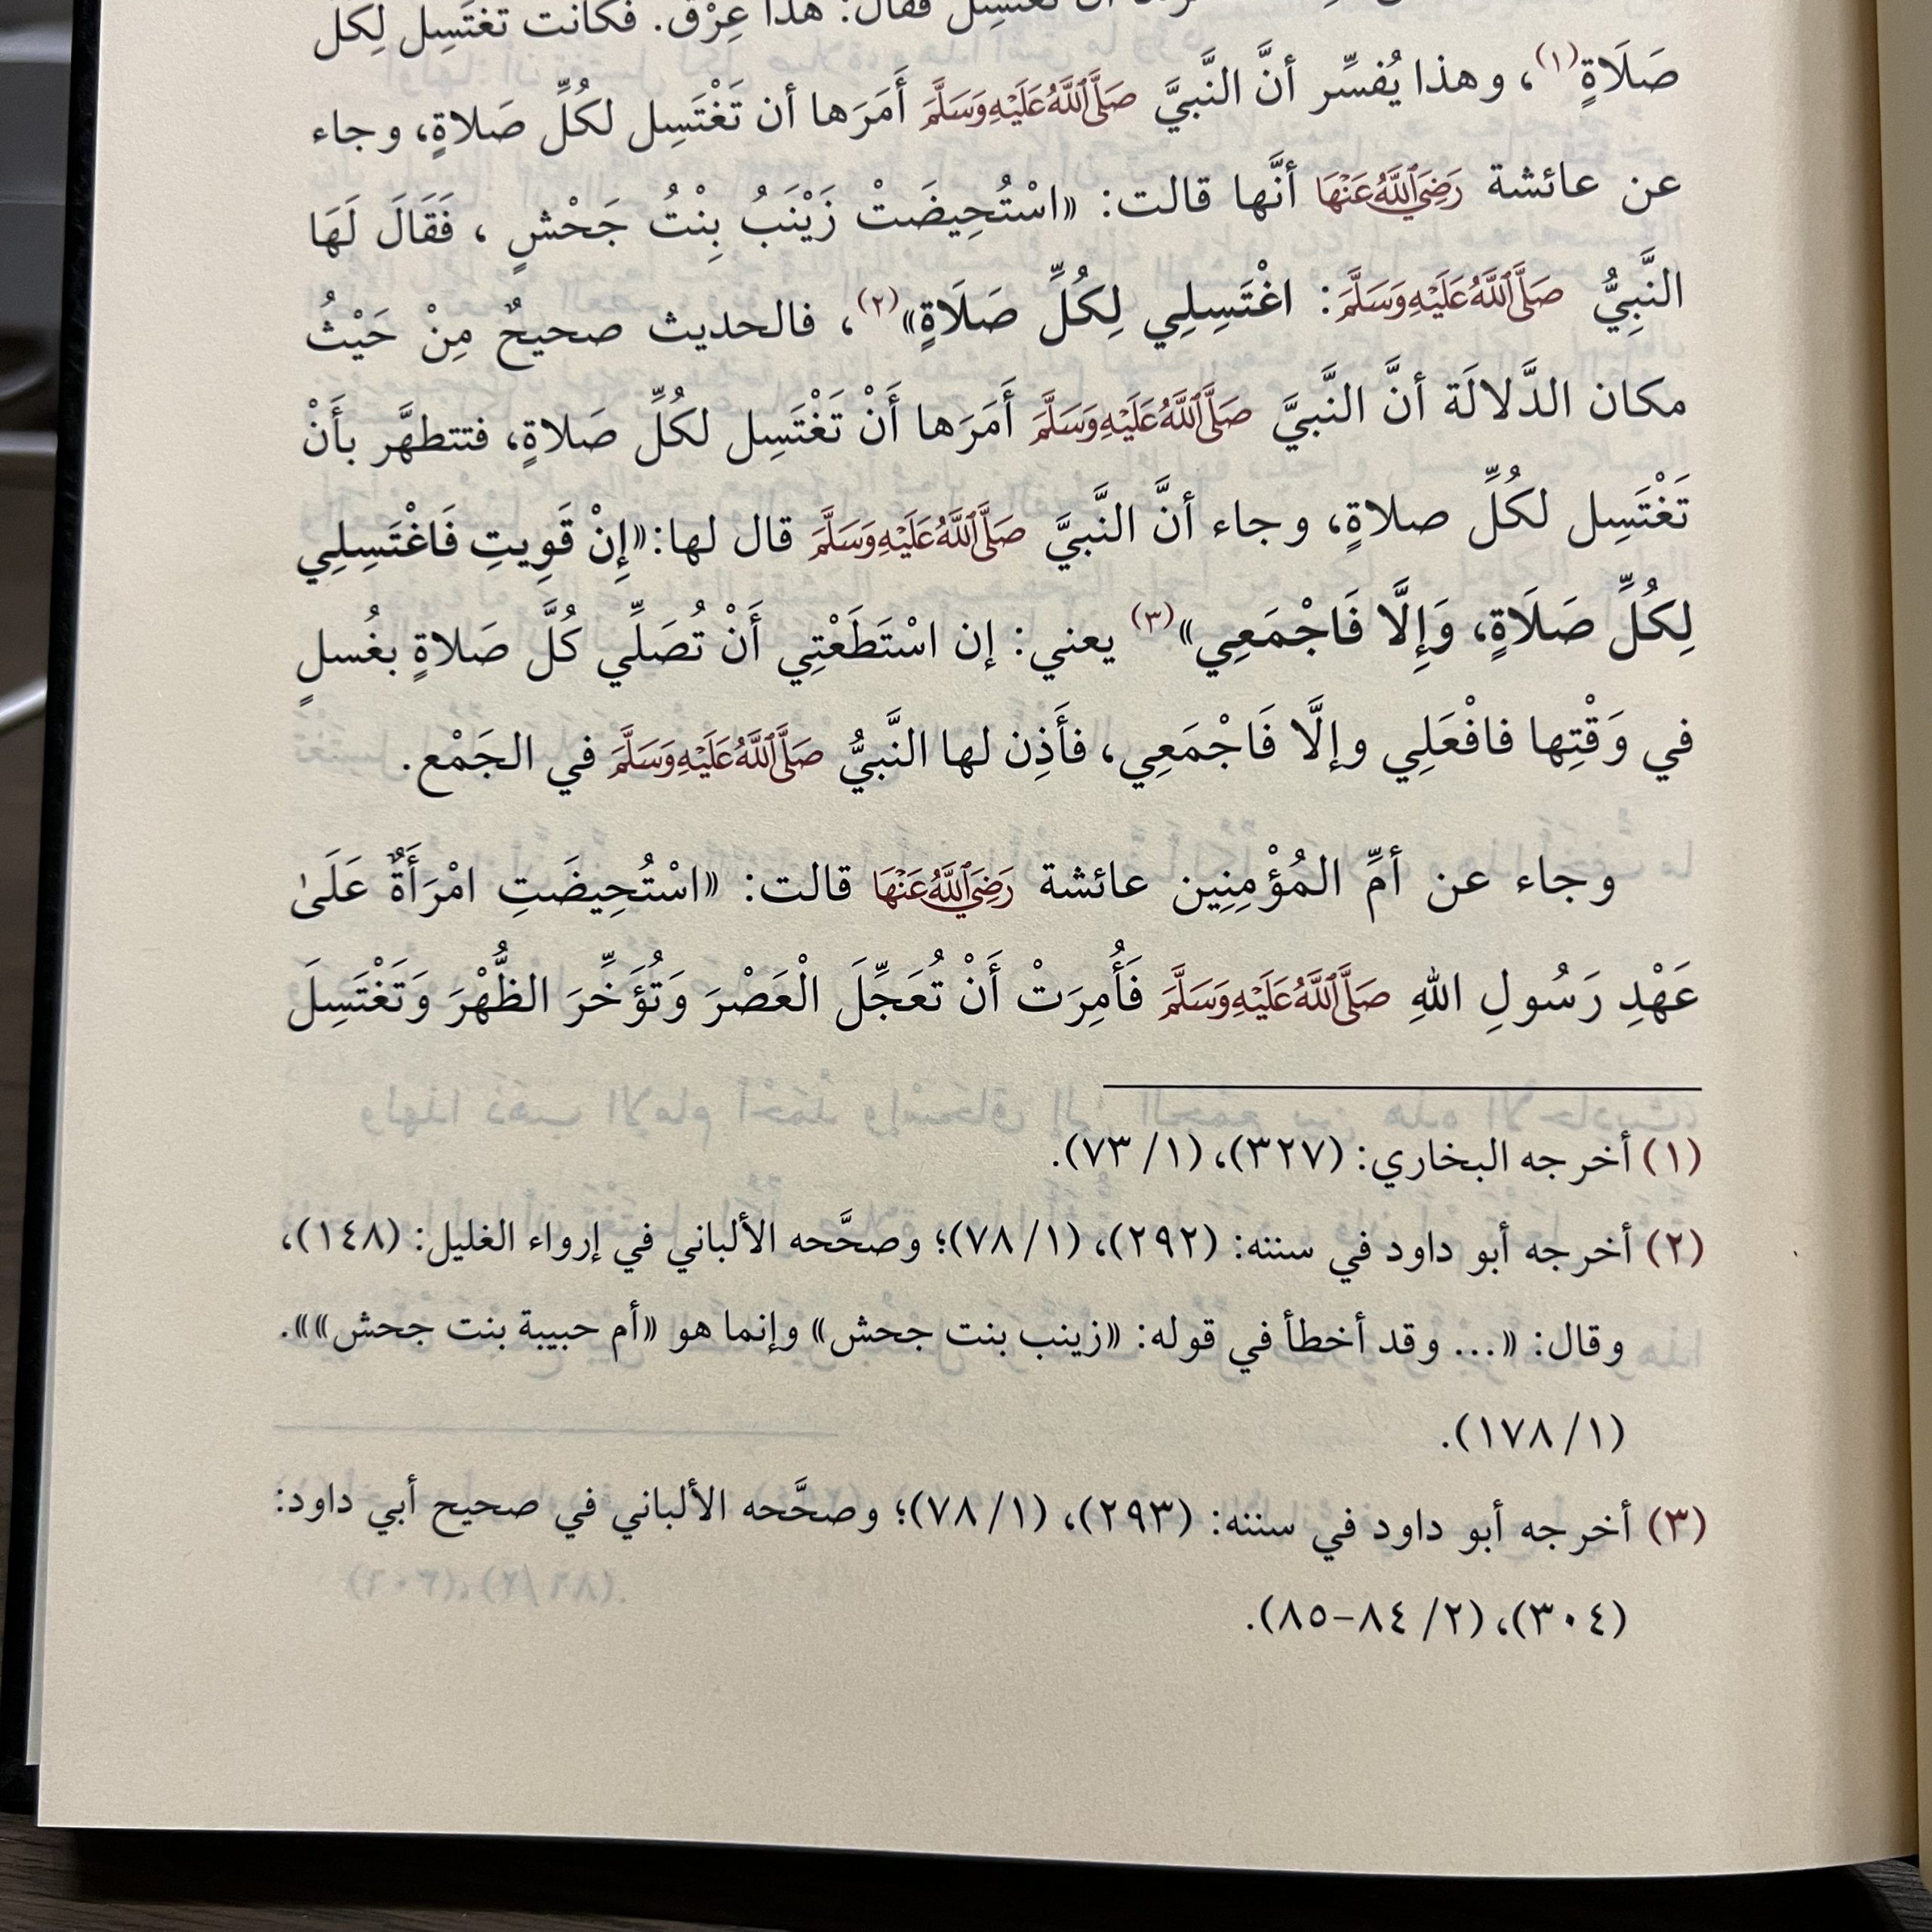 تَغْتَسِل فقال: هذا عِرْقٌ. فكانت تَغتَسِل لِكلِّ
صَلَاةٍ(١)، وهذا يُفسِّر أنَّ النَّبيَّ صَلَّى اللَّهُ عَلَيْهِ وَسَلَّمَ أَمَرَها أن تَغْتَسِل لكُلِّ صَلاةٍ، وجاء
عن عائشة رَضِيَ اللَّهُ عَنْهَا أنَّها قالت: «اسْتُحِيضَتْ زَيْنَبُ بِنْتُ جَحْشٍ ، فَقَالَ لَهَا
النَّبِيُّ صَلَّى اللَّهُ عَلَيْهِ وَسَلَّمَ: اغْتَسِلِي لِكُلِّ صَلَاةٍ»(٢)، فالحديث صحيحٌ مِنْ حَيْثُ
مكان الدَّلالَة أنَّ النَّبيَّ صَلَّى اللَّهُ عَلَيْهِ وَسَلَّمَ أَمَرَها أَنْ تَغْتَسِل لكُلِّ صَلاةٍ، فتتطهَّر بأَنْ
تَغْتَسِل لكُلِّ صلاةٍ، وجاء أنَّ النَّبيَّ صَلَّى اللَّهُ عَلَيْهِ وَسَلَّمَ قال لها:«إِنْ قَوِيتِ فَاغْتَسِلِي
لِكُلِّ صَلَاةٍ، وَإِلَّا فَاجْمَعِي»(٣) يعني: إن اسْتَطَعْتِي أَنْ تُصَلِّي كُلَّ صَلاةٍ بغُسلٍ
في وَقْتِها فافْعَلِي وإلَّا فَاجْمَعِي، فأَذِن لها النَّبيُّ صَلَّى اللَّهُ عَلَيْهِ وَسَلَّمَ في الجَمْع.
وجاء عن أمِّ المُؤْمِنِين عائشة رَضِيَ اللَّهُ عَنْهَا قالت: «اسْتُحِيضَتِ امْرَأَةٌ عَلَىٰ
عَهْدِ رَسُولِ اللهِ صَلَّى اللَّهُ عَلَيْهِ وَسَلَّمَ فَأُمِرَتْ أَنْ تُعَجِّلَ الْعَصْرَ وَتُؤَخِّرَ الظُّهْرَ وَتَغْتَسِلَ
(١) أخرجه البخاري: (٣٢٧)، (١/ ٧٣).
(٢) أخرجه أبو داود في سننه: (٢٩٢)، (١/ ٧٨)؛ وصحَّحه الألباني في إرواء الغليل: (١٤٨)،
وقال: «... وقد أخطأ في قوله: «زينب بنت جحش» وإنما هو «أم حبيبة بنت جحش»».
(١/ ١٧٨).
(٣) أخرجه أبو داود في سننه: (٢٩٣)، (١/ ٧٨)؛ وصحَّحه الألباني في صحيح أبي داود:
(٣٠٤)، (٢/ ٨٤-٨٥).